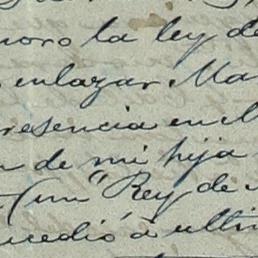 noro la ley de
enlazar Ma
resencia en M
de mi hija
(un "Rey de
cedió á ulti